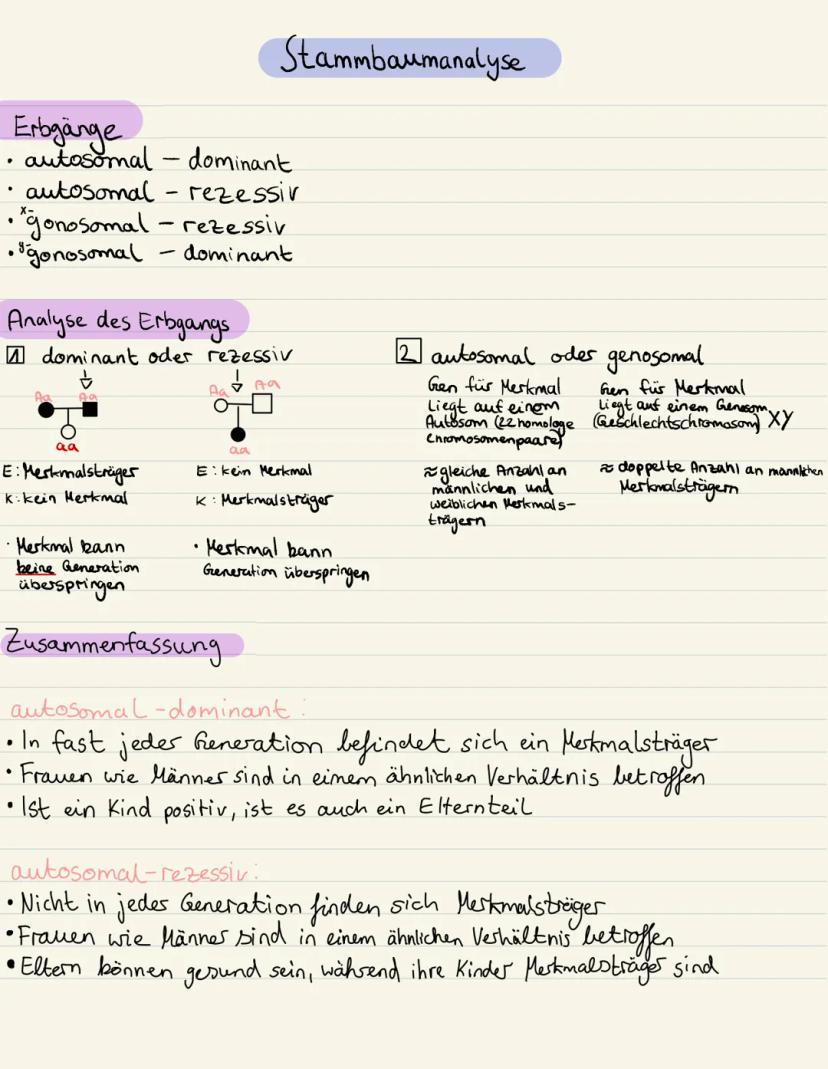 Stammbaumanalyse
Erbgänge
• autosomal – dominant
• autosomal – rezessiv
• x-gonosomal – rezessiv
• y-gonosomal – dominant
Analyse des Erbgangs
1 dominant oder rezessiv
Aa Aa
aa
E: Merkmalsträger
K: kein Merkmal
· Merkmal kann
keine Generation
überspringen
Aa Aa
aa
E: kein Merkmal
K: Merkmalsträger
• Merkmal kann
Generation überspringen
2 autosomal oder genosomal
Gen für Merkmal
Liegt auf einem
Autosom (22 homologe
Chromosomenpaare)
≈ gleiche Anzahl an
männlichen und
weiblichen Merkmals-
trägern
Gen für Merkmal
Liegt auf einem Genosom
(Geschlechtschromosom) XY
≈ doppelte Anzahl an männlichen
Merkmalsträgern
Zusammenfassung
autosomal-dominant:
• In fast jeder Generation befindet sich ein Merkmalsträger
• Frauen wie Männer sind in einem ähnlichen Verhältnis betroffen
• Ist ein Kind positiv, ist es auch ein Elternteil
autosomal-rezessiv:
• Nicht in jeder Generation finden sich Merkmalsträger
• Frauen wie Männer sind in einem ähnlichen Verhältnis betroffen
• Eltern können gesund sein, während ihre Kinder Merkmalsträger sind